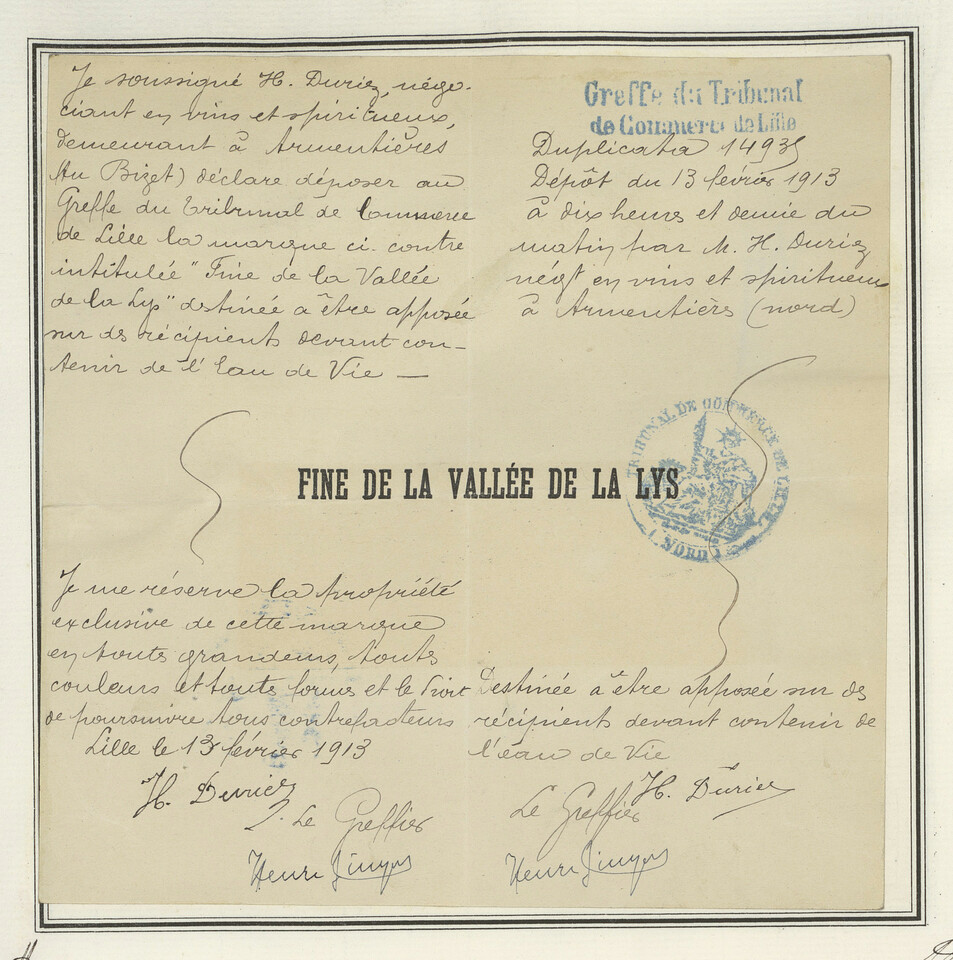 Je soussigné H. Duriez, négo-
ciant en vins et spiritueux,
demeurant à Armentières
Au Bizet) déclare déposer au
Greffe du Tribunal de Commerce
de Lille la marque ci contre
intitulée "Fine de la Vallée
de la Lys" destinée à être apposée
sur des récipients devant con-
tenir de l'Eau de Vie —
Greffe du Tribunal
de Commerce de Lille
Duplicata 14935
Dépôt du 13 février 1913
à dix heures et demie du
matin par M. H. Duriez
négt en vins et spiritueux
à Armentières (nord)
FINE DE LA VALLÉE DE LA LYS
TRIBUNAL DE COMMERCE DE LILLE
(NORD)
Je me réserve la propriété
exclusive de cette marque
en toutes grandeurs, toutes
couleurs et toute formes et le droit
de poursuivre tous contrefacteurs
Lille le 13 février 1913
H. Duriez
Le Greffier
Henri
Destinée à être apposée sur des
récipients devant contenir de
l'eau de Vie
H. Duriez
Le Greffier
Henri